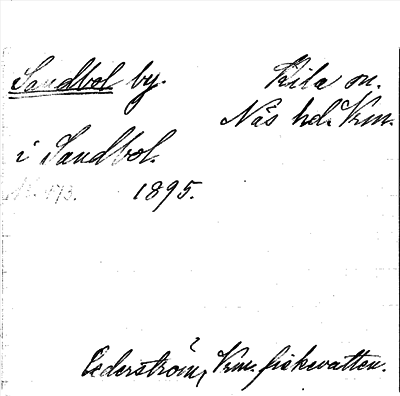 Sandbol by. Kila sn.
Näs hd. Vrm.
i Sandbol.
N. 173. 1895.
Cederström, Vrm. fiskevatten.